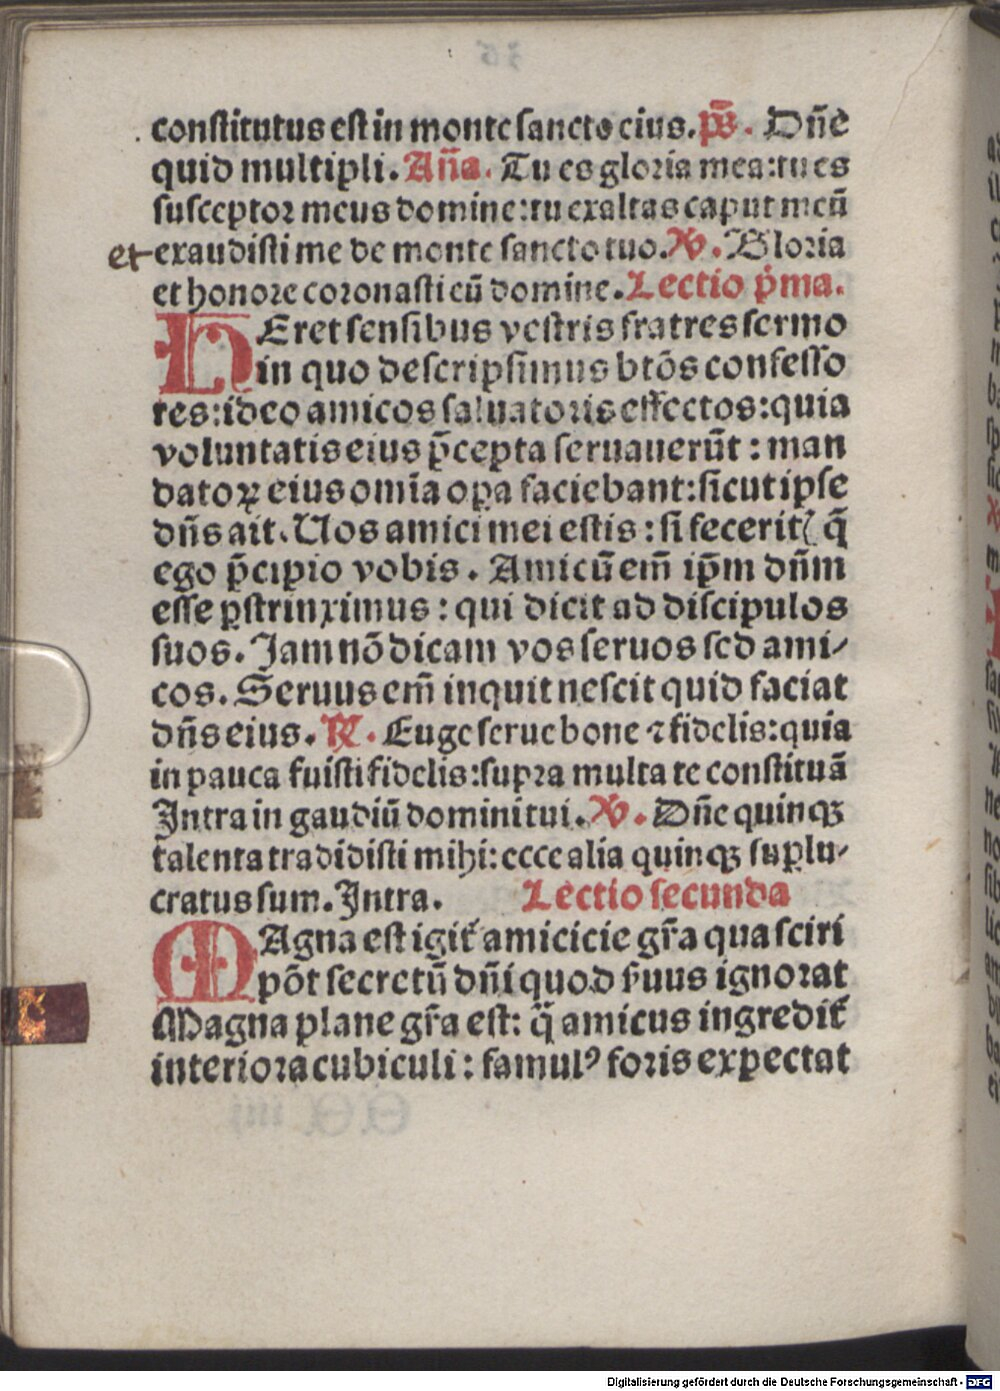 constitutus est in monte sancto eius. p̄s. Dn̄e
quid multipli. An̄a. Tu es gloria mea: tu es
susceptor meus domine: tu exaltas caput meū
et exaudisti me de monte sancto tuo. V. Gloria
et honore coronasti eū domine. Lectio p̓ma.
HEret sensibus vestris fratres sermo
in quo descripsimus btōs confesso
res: ideo amicos saluatoris effectos: quia
voluntatis eius p̄cepta seruauerūt: man
datoꝝ eius omīa oꝑa faciebant: sicut ipse
dn̄s ait. Uos amici mei estis: si feceritꝭ q̄
ego p̄cipio vobis. Amicū em̄ ip̄m dn̄m
esse ꝑstrinximus: qui dicit ad discipulos
suos. Jam nō dicam vos seruos sed ami⸗
cos. Seruus em̄ inquit nescit quid faciat
dn̄s eius. ℟. Euge serue bone ⁊ fidelis: quia
in pauca fuisti fidelis: supra multa te constituā
Intra in gaudiū domini tui. V. Dn̄e quinqꝫ
talenta tradidisti mihi: ecce alia quinqꝫ suꝑlu⸗
cratus sum. Intra. Lectio secunda
MAgna est igit᷑ amicicie gr̄a qua sciri
pōt secretū dn̄i quod s̓uus ignorat
Magna plane gr̄a est: q̄ amicus ingredit᷑
interiora cubiculi: famulꝰ foris expectat
Digitalisierung gefördert durch die Deutsche Forschungsgemeinschaft - DFG